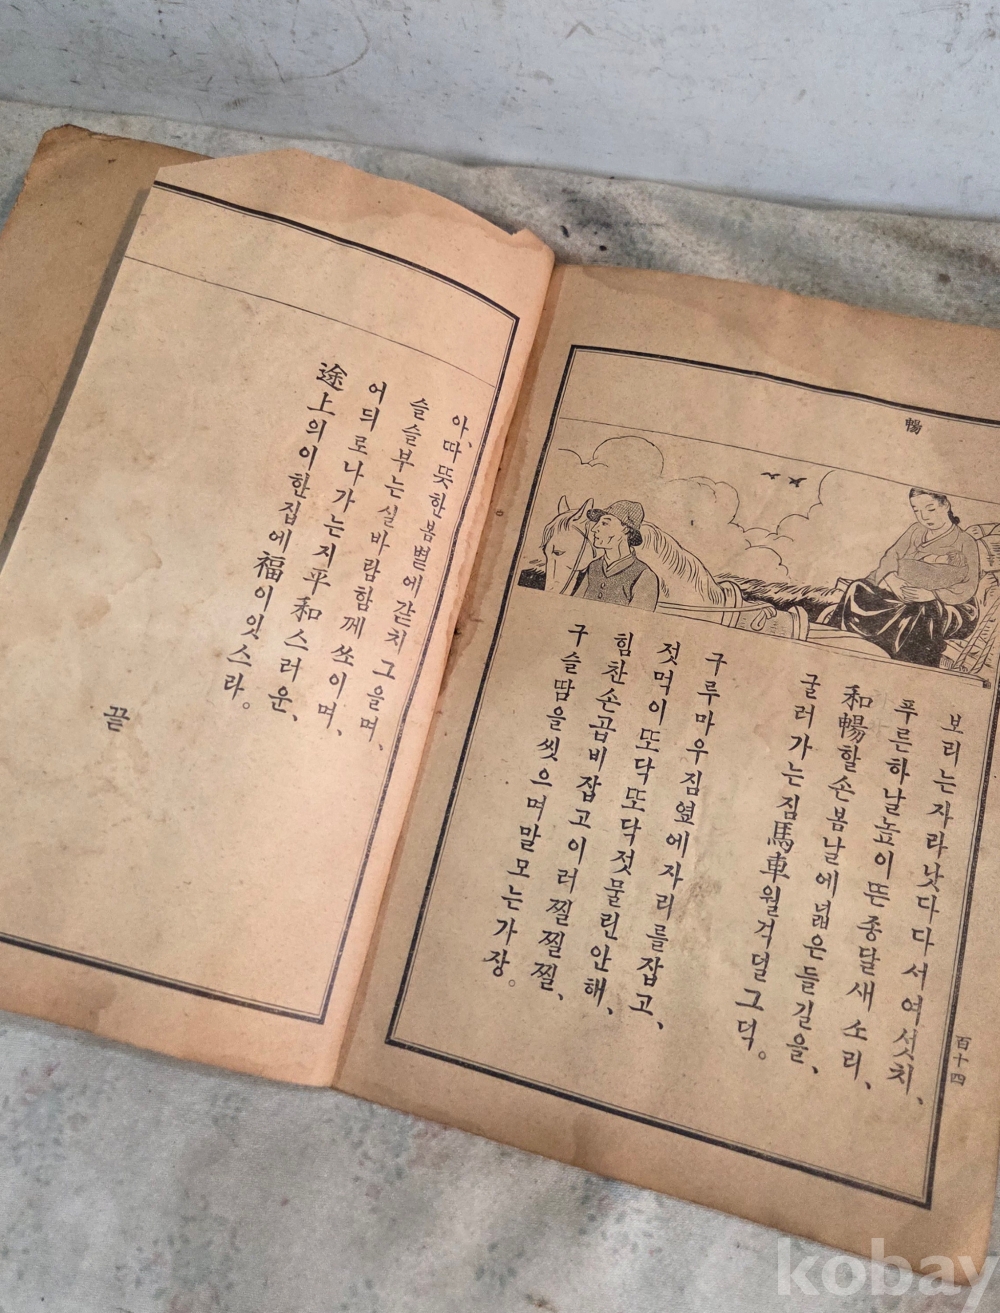 暢
보리는자라낫다다서여섯치、
푸른하날높이뜬종달새소리、
和暢할손봄날에넓은들길을、
굴러가는짐馬車월걱덜그덕。
구루마우짐옆에자리를잡고、
젓먹이또닥또닥젓물린안해、
힘찬손곱비잡고이러찔찔찔、
구슬땀을씻으며말모는가장。
百十四
아、따뜻한봄볕에같치그을며、
슬슬부는실바람함께쏘이며、
어듸로나가는지平和스러운、
途上의이한집에福이잇스라。
끝
kobay